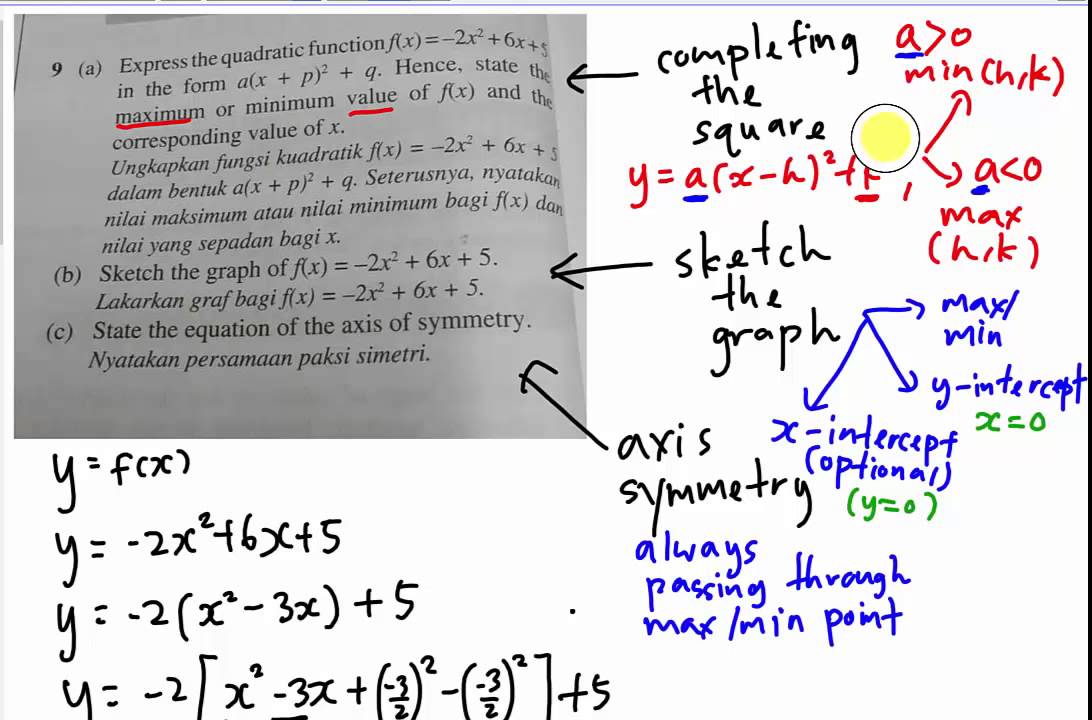 9 (a) Express the quadratic function f(x) = –2x² + 6x + 5
in the form a(x + p)² + q. Hence, state the
maximum or minimum value of f(x) and the
corresponding value of x.
Ungkapkan fungsi kuadratik f(x) = –2x² + 6x + 5
dalam bentuk a(x + p)² + q. Seterusnya, nyatakan
nilai maksimum atau nilai minimum bagi f(x) dan
nilai yang sepadan bagi x.
(b) Sketch the graph of f(x) = –2x² + 6x + 5.
Lakarkan graf bagi f(x) = –2x² + 6x + 5.
(c) State the equation of the axis of symmetry.
Nyatakan persamaan paksi simetri.
completing
the
square
a>0
min(h,k)
y = a(x-h)²+k,
a<0
max
(h,k)
sketch
the
graph
max/
min
y-intercept
x=0
x-intercept
(optional)
(y=0)
axis
symmetry
always
passing through
max/min point
y = f(x)
y = -2x²+6x+5
y = -2(x²-3x)+5
y = -2[x²-3x+(-3/2)²-(-3/2)²]+5